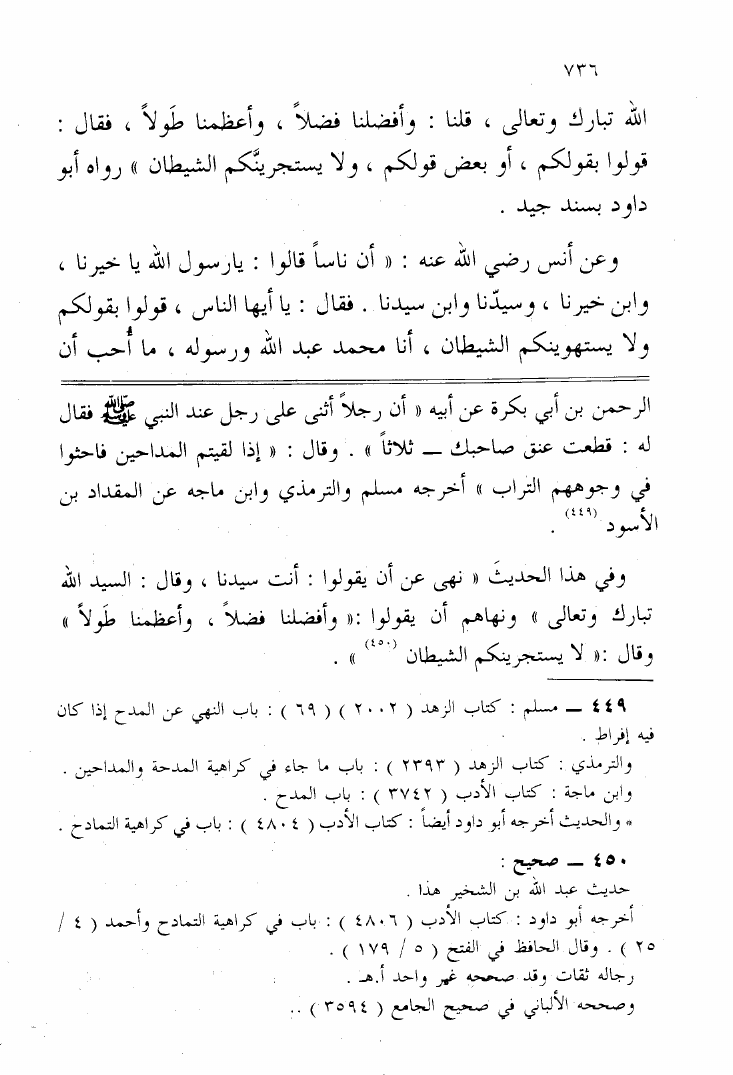 ٧٣٦
الله تبارك وتعالى ، قلنا : وأفضلنا فضلاً ، وأعظمنا طَولاً ، فقال :
قولوا بقولكم ، أو بعض قولكم ، ولا يستجرينَّكم الشيطان » رواه أبو
داود بسند جيد .
وعن أنس رضي الله عنه : « أن ناساً قالوا : يارسول الله يا خيرنا ،
وابن خيرنا ، وسيدّنا وابن سيدنا . فقال : يا أيها الناس ، قولوا بقولكم
ولا يستهوينكم الشيطان ، أنا محمد عبد الله ورسوله ، ما أُحب أن
الرحمن بن أبي بكرة عن أبيه « أن رجلاً أثنى على رجل عند النبي ﷺ فقال
له : قطعت عنق صاحبك ــ ثلاثاً » . وقال : « إذا لقيتم المداحين فاحثوا
في وجوههم التراب » أخرجه مسلم والترمذي وابن ماجه عن المقداد بن
الأسود (٤٤٩) .
وفي هذا الحديثَ « نهى عن أن يقولوا : أنت سيدنا ، وقال : السيد الله
تبارك وتعالى » ونهاهم أن يقولوا :« وأفضلنا فضلاً ، وأعظمنا طَولاً »
وقال :« لا يستجرينكم الشيطان (٤٥٠) » .
٤٤٩ ــ مسلم : كتاب الزهد ( ٢٠٠٢ ) ( ٦٩ ) : باب النهي عن المدح إذا كان
فيه إفراط .
والترمذي : كتاب الزهد ( ٢٣٩٣ ) : باب ما جاء في كراهية المدحة والمداحين .
وابن ماجة : كتاب الأدب ( ٣٧٤٢ ) : باب المدح .
* والحديث أخرجه أبو داود أيضاً : كتاب الأدب ( ٤٨٠٤ ) : باب في كراهية التمادح .
٤٥٠ ــ صحيح :
حديث عبد الله بن الشخير هذا .
أخرجه أبو داود : كتاب الأدب ( ٤٨٠٦ ) : باب في كراهية التمادح وأحمد ( ٤ /
٢٥ ) . وقال الحافظ في الفتح ( ٥ / ١٧٩ ) .
رجاله ثقات وقد صححه غير واحد أ.هـ .
وصححه الألباني في صحيح الجامع ( ٣٥٩٤ ) ..